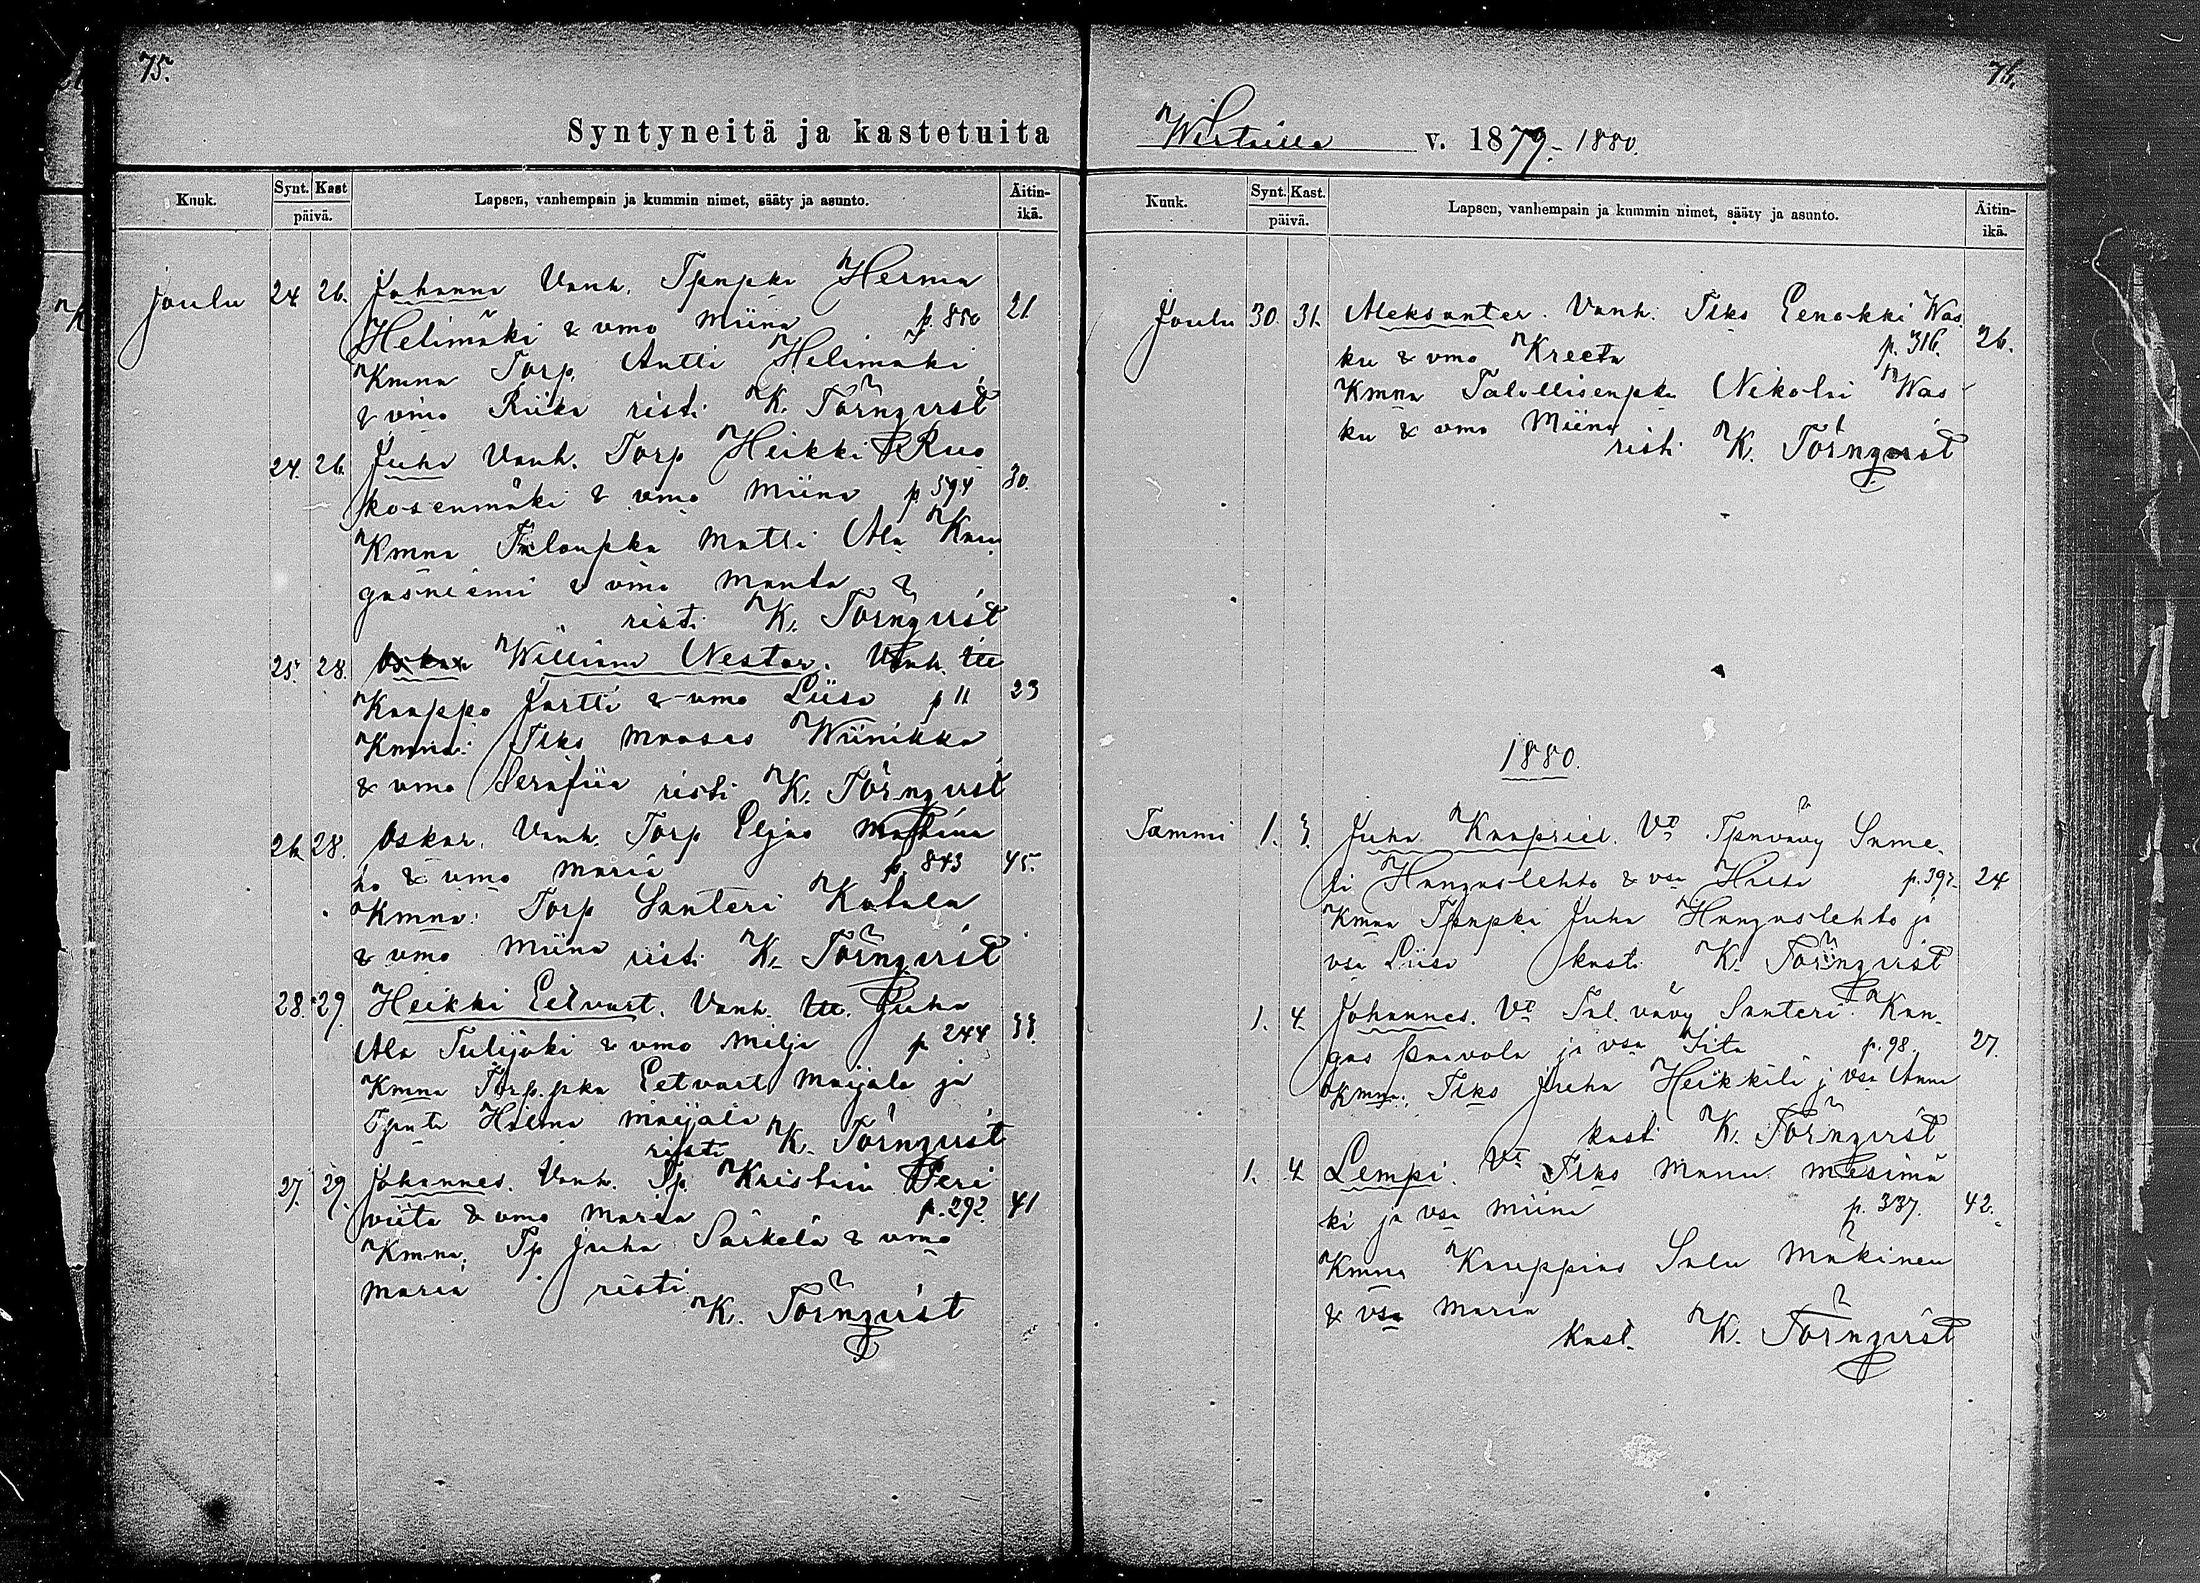 75.
Syntyneitä ja kastetuita
Kuuk. Synt. Kast päivä. Lapsen, vanhempain ja kummin nimet, sääty ja asunto. Äitin-ikä.
Joulu 24 26. Johanna Vanh. Tpnpka Herma
Helimäki & vmo Miina p. 850 21
Kmna Torp. Antti Helimäki
& vmo Riika risti K. Törnqvist
24. 26. Juho Vanh. Torp Heikki Ruo
kosenmäki & vmo Miina p. 594 30.
Kmna Talonpka Matti Ala Kan
gasniemi & vmo Manta &
risti K. Törnqvist
25. 28. Oskar William Nestor. Vanh. Itt
Kaappo Jartti & vmo Liisa p 11 23
Kmna: Tlks Mooses Wiinikka
& vmo Serafiia risti K. Törnqvist
26. 28. Oskar. Vanh. Torp Eljas
ho & vmo Maria p. 843 45.
Kmna: Torp Santeri Katala
& vmo Miina risti K. Törnqvist
28. 29. Heikki Eetvart. Vanh. Itt. Juha
Ala Tulijoki & vmo Milja p 244 33.
Kmna Torp.pka Eetvart Maijala ja
Hilma Maijala
risti K. Törnqvist
27. 29. Johannes. Vanh. Tp. Kristian Peri
viita & vmo Maria p. 292. 41
Kmna. Tp Juha Särkelä & vmo
Maria risti
K. Törnqvist
76.
v. 1879-1880.
Kuuk. Synt. Kast. päivä. Lapsen, vanhempain ja kummin nimet, sääty ja asunto. Äitin-ikä.
Joulu 30. 31. Aleksanter. Vanh. Tlks Eenokki Was
ku & vmo Kreeta p. 316. 26.
Kmna Talollisenpka Nikolai Was
ku & vmo Miina
risti K. Törnqvist
1880.
Tammi 1. 3. Juha Kaapriel. Vt Tpnvävy Same-
li Hangaslehto & vsa p. 397. 24
Kmna Tpnpka Juha Hangaslehto ja
vsa Liisa kast. K. Törnqvist
1. 4. Johannes. Vt Tal. vävy Santeri Kan-
gas Paavola ja vsa Iita p. 98. 27.
Kmna. Tlks Juha Heikkilä j vsa Anna
kast. K. Törnqvist
1. 4. Lempi. Vt Tlks Manu Mesimä
ki ja vsa Miina p. 337. 42.
Kmna Kauppias Salu Mäkinen
& vsa Maria
Kast. K. Törnqvist